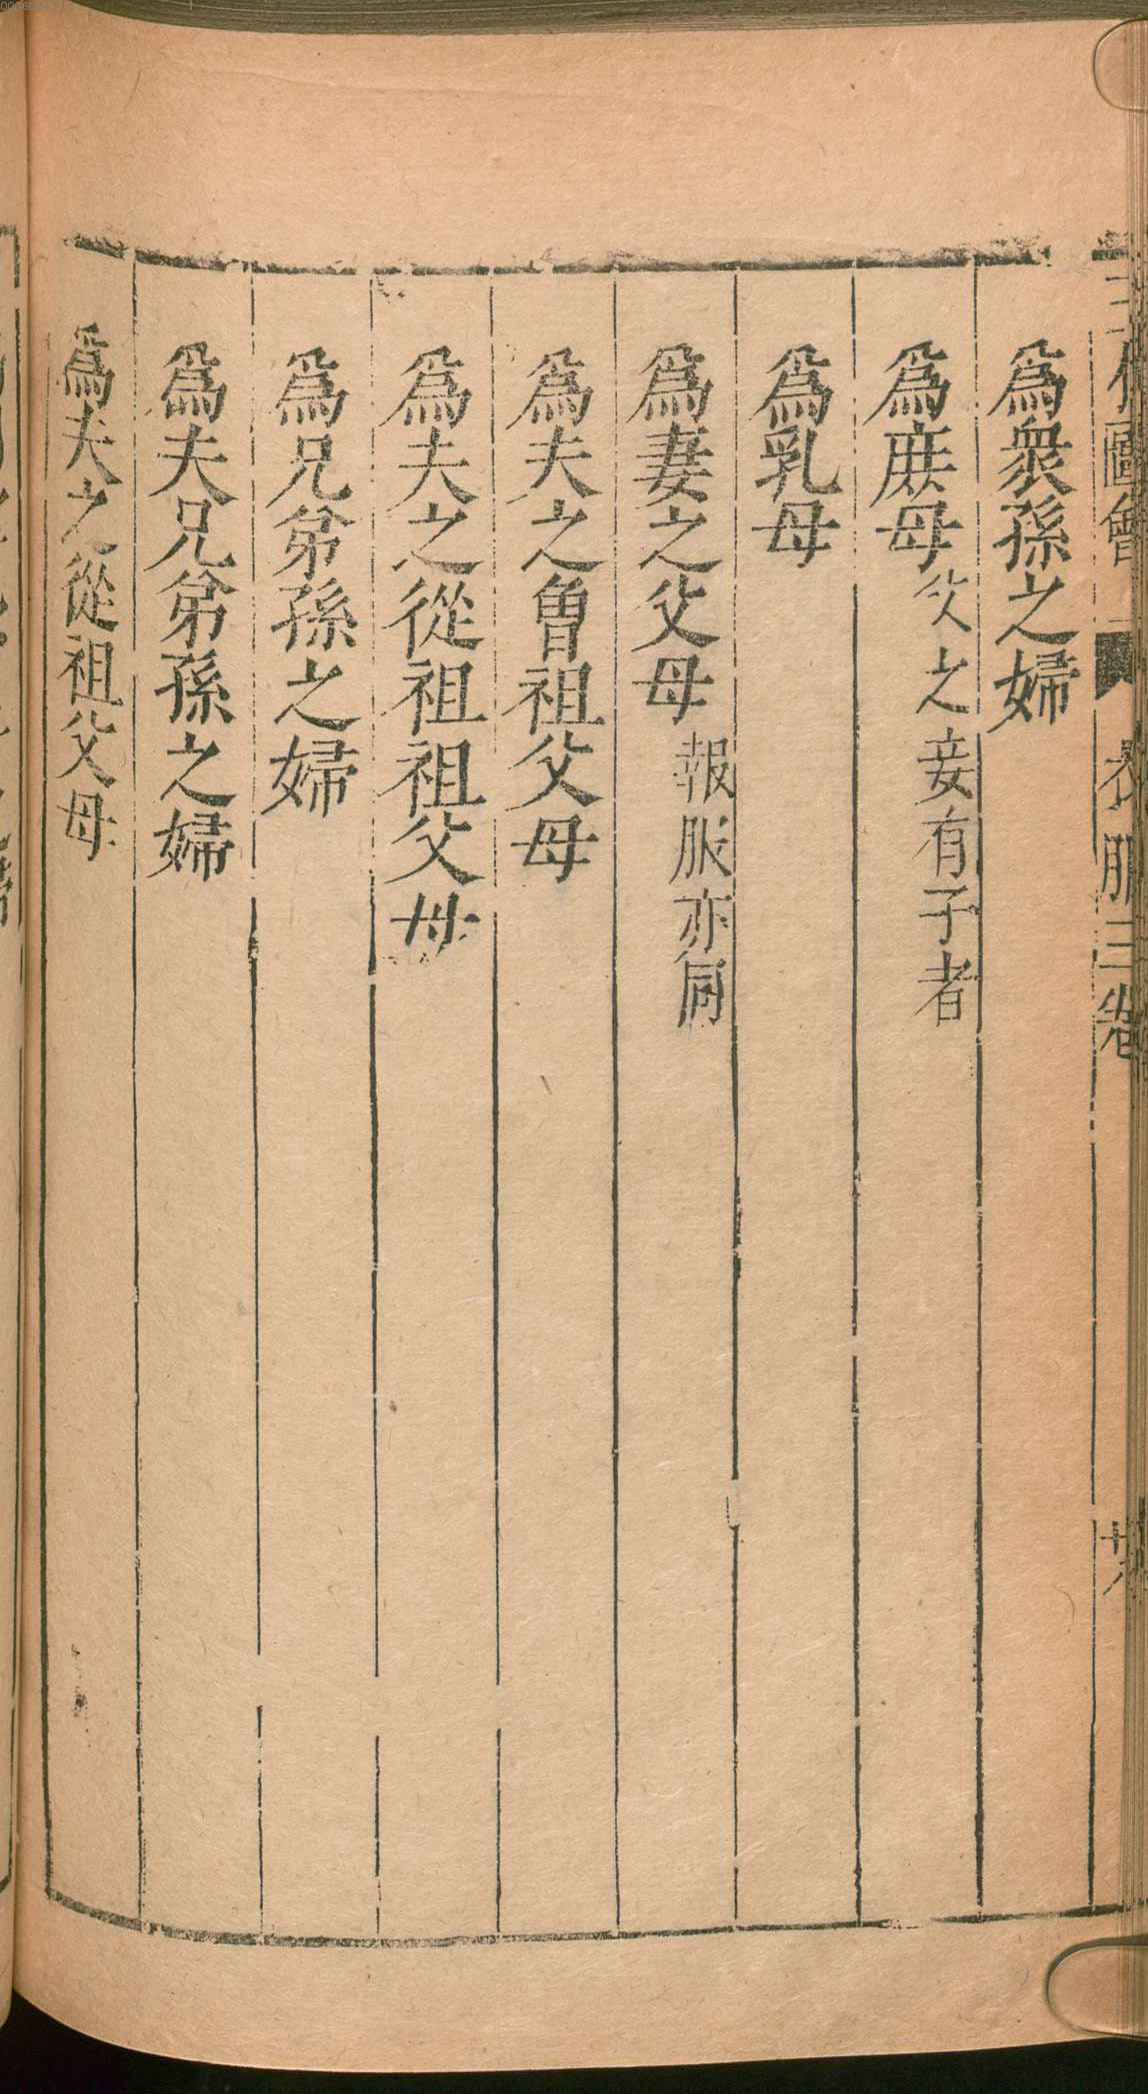 三才圖會 衣服三卷 廿八
爲衆孫之婦
爲庶母父之妾有子者
爲乳母
爲妻之父母報服亦同
爲夫之曾祖父母
爲夫之從祖祖父母
爲兄弟孫之婦
爲夫兄弟孫之婦
爲夫之從祖父母